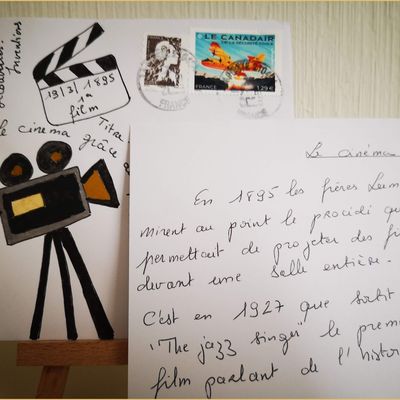 Inventions
19/3/1895
1er
film
Titre
cinema grâce
LE CANADAIR
DE LA SÉCURITÉ CIVILE
FRANCE 1,29 €
FRANCE
Le cinéma
En 1895 les frères Lum
mirent au point le procidi qu
permettait de projeter des fi
devant une salle entière.
C'est en 1927 que sortit
"The jazz singer" le premi
film parlant de l'histoir